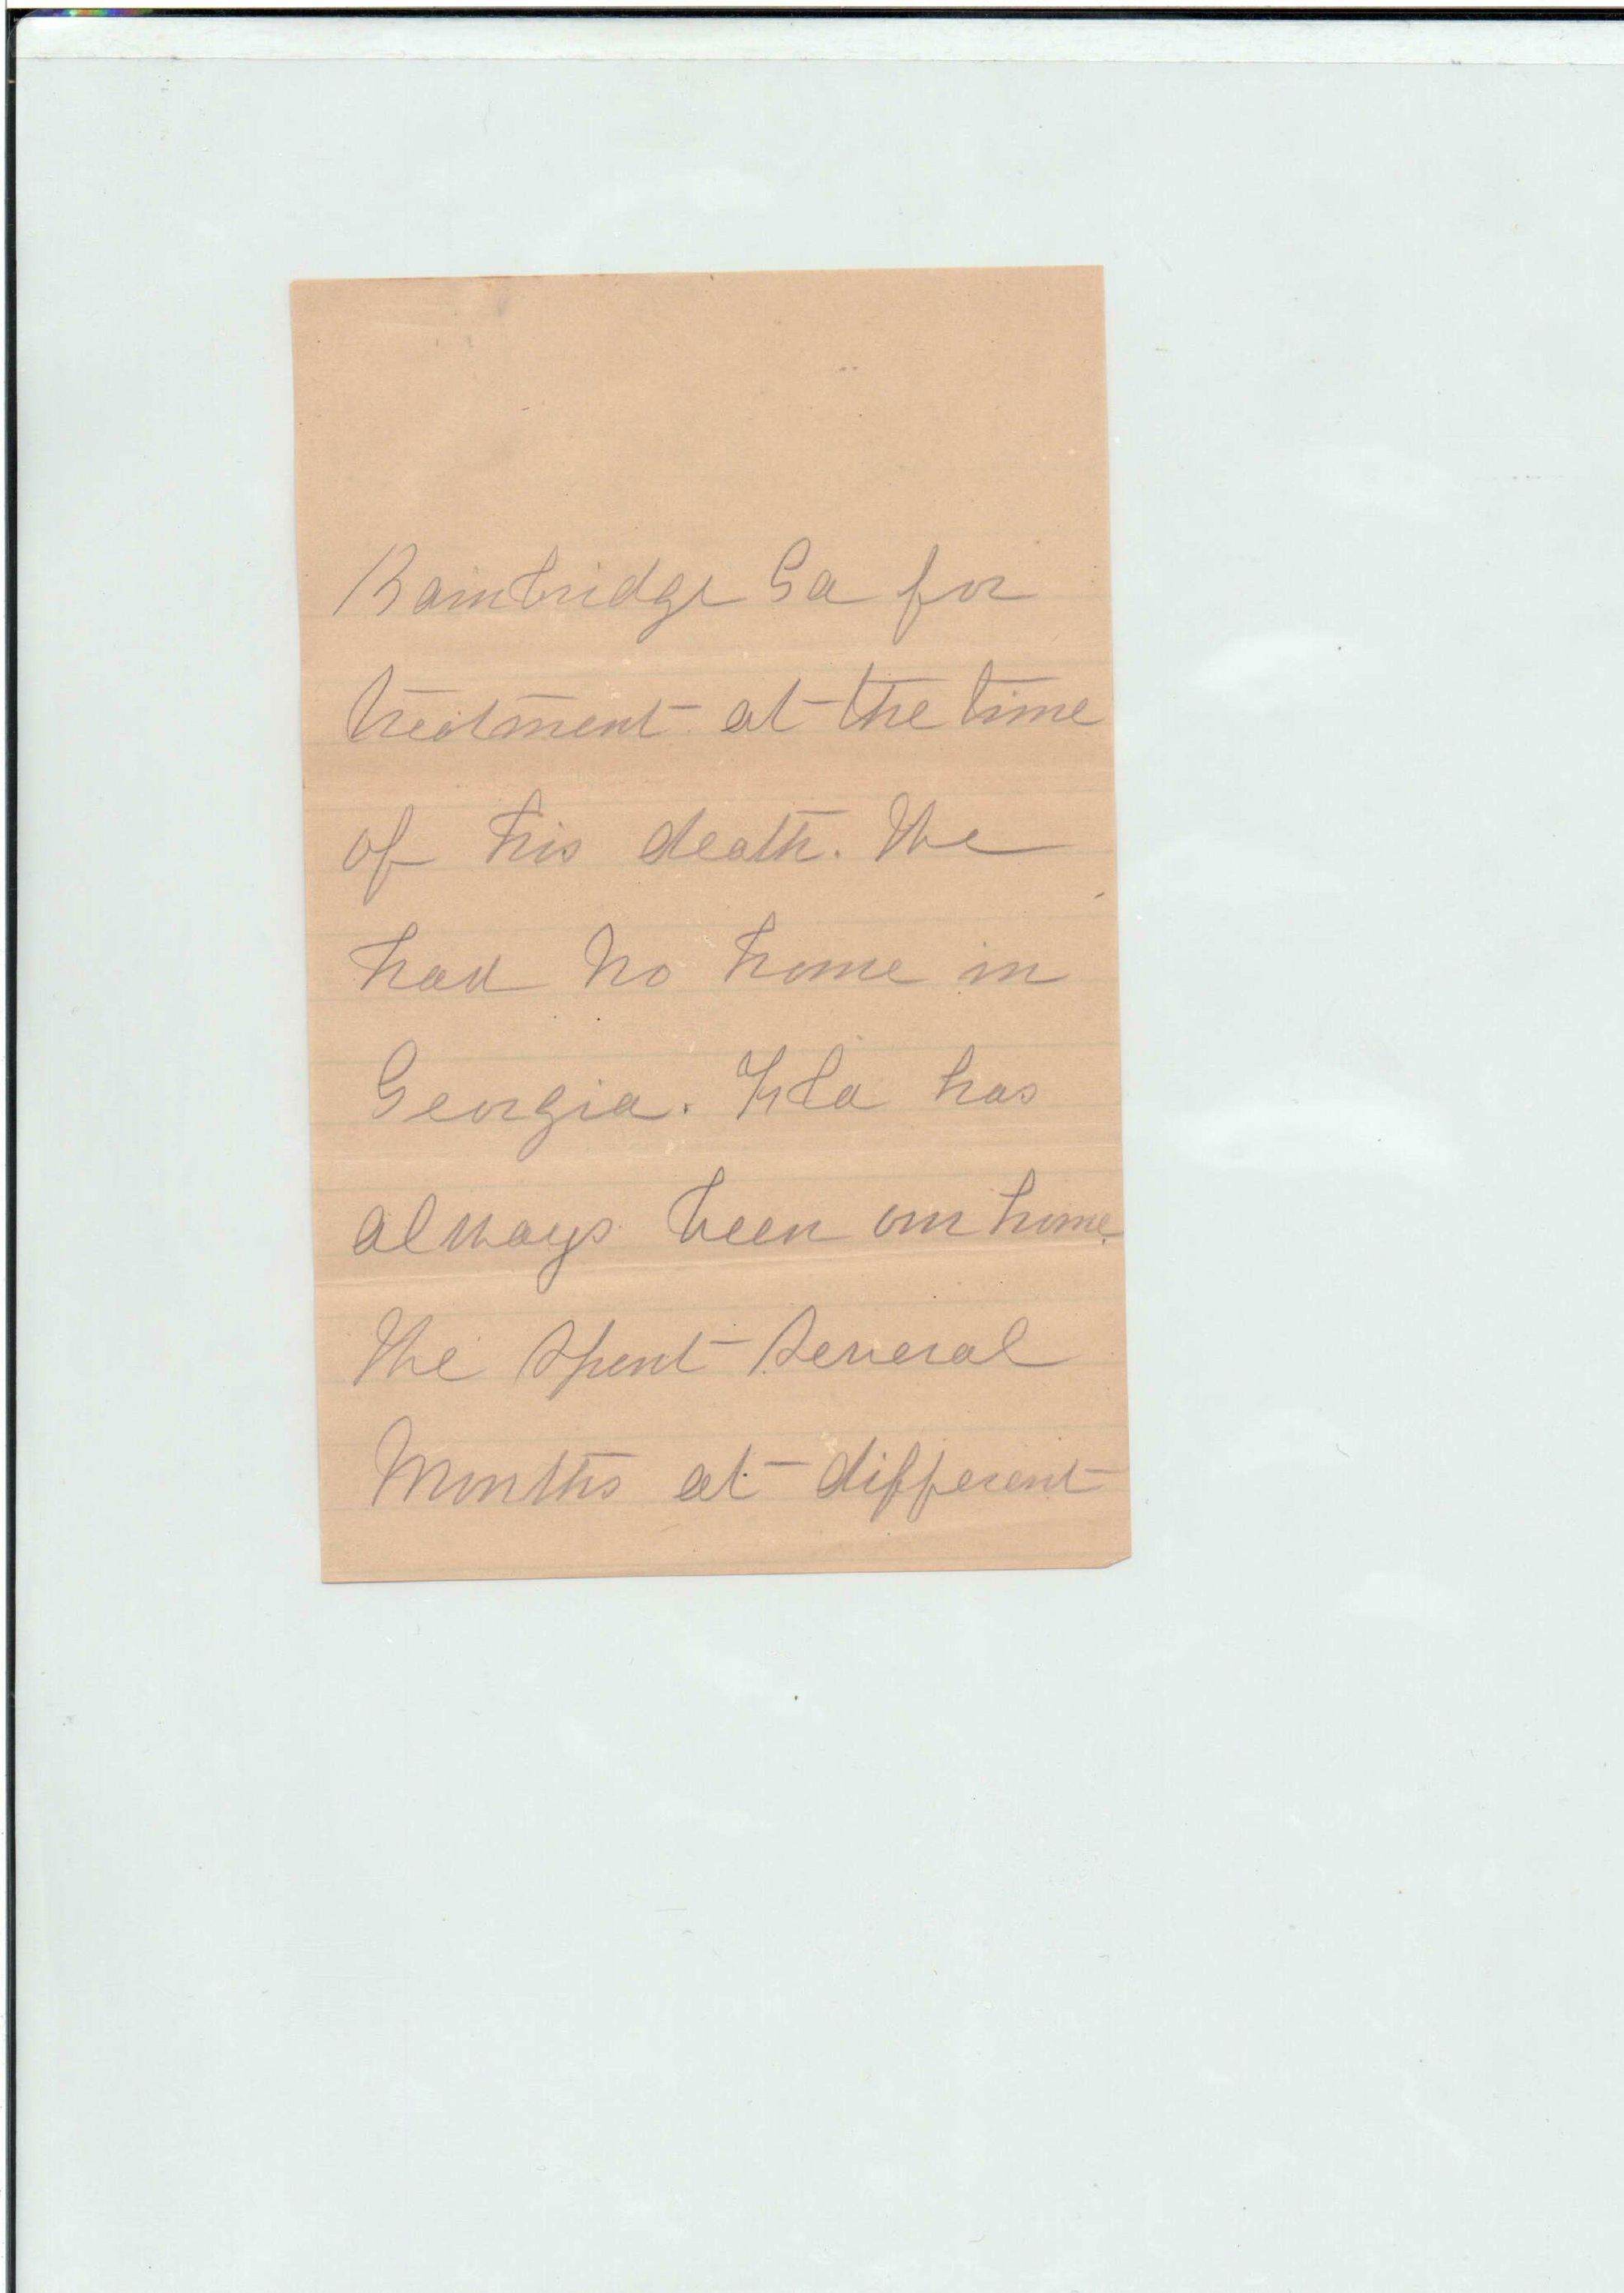 Bainbridge Ga for
treatment at the time
of his death. We
had no home in
Georgia. Fla has
always been our home.
We spent several
months at different